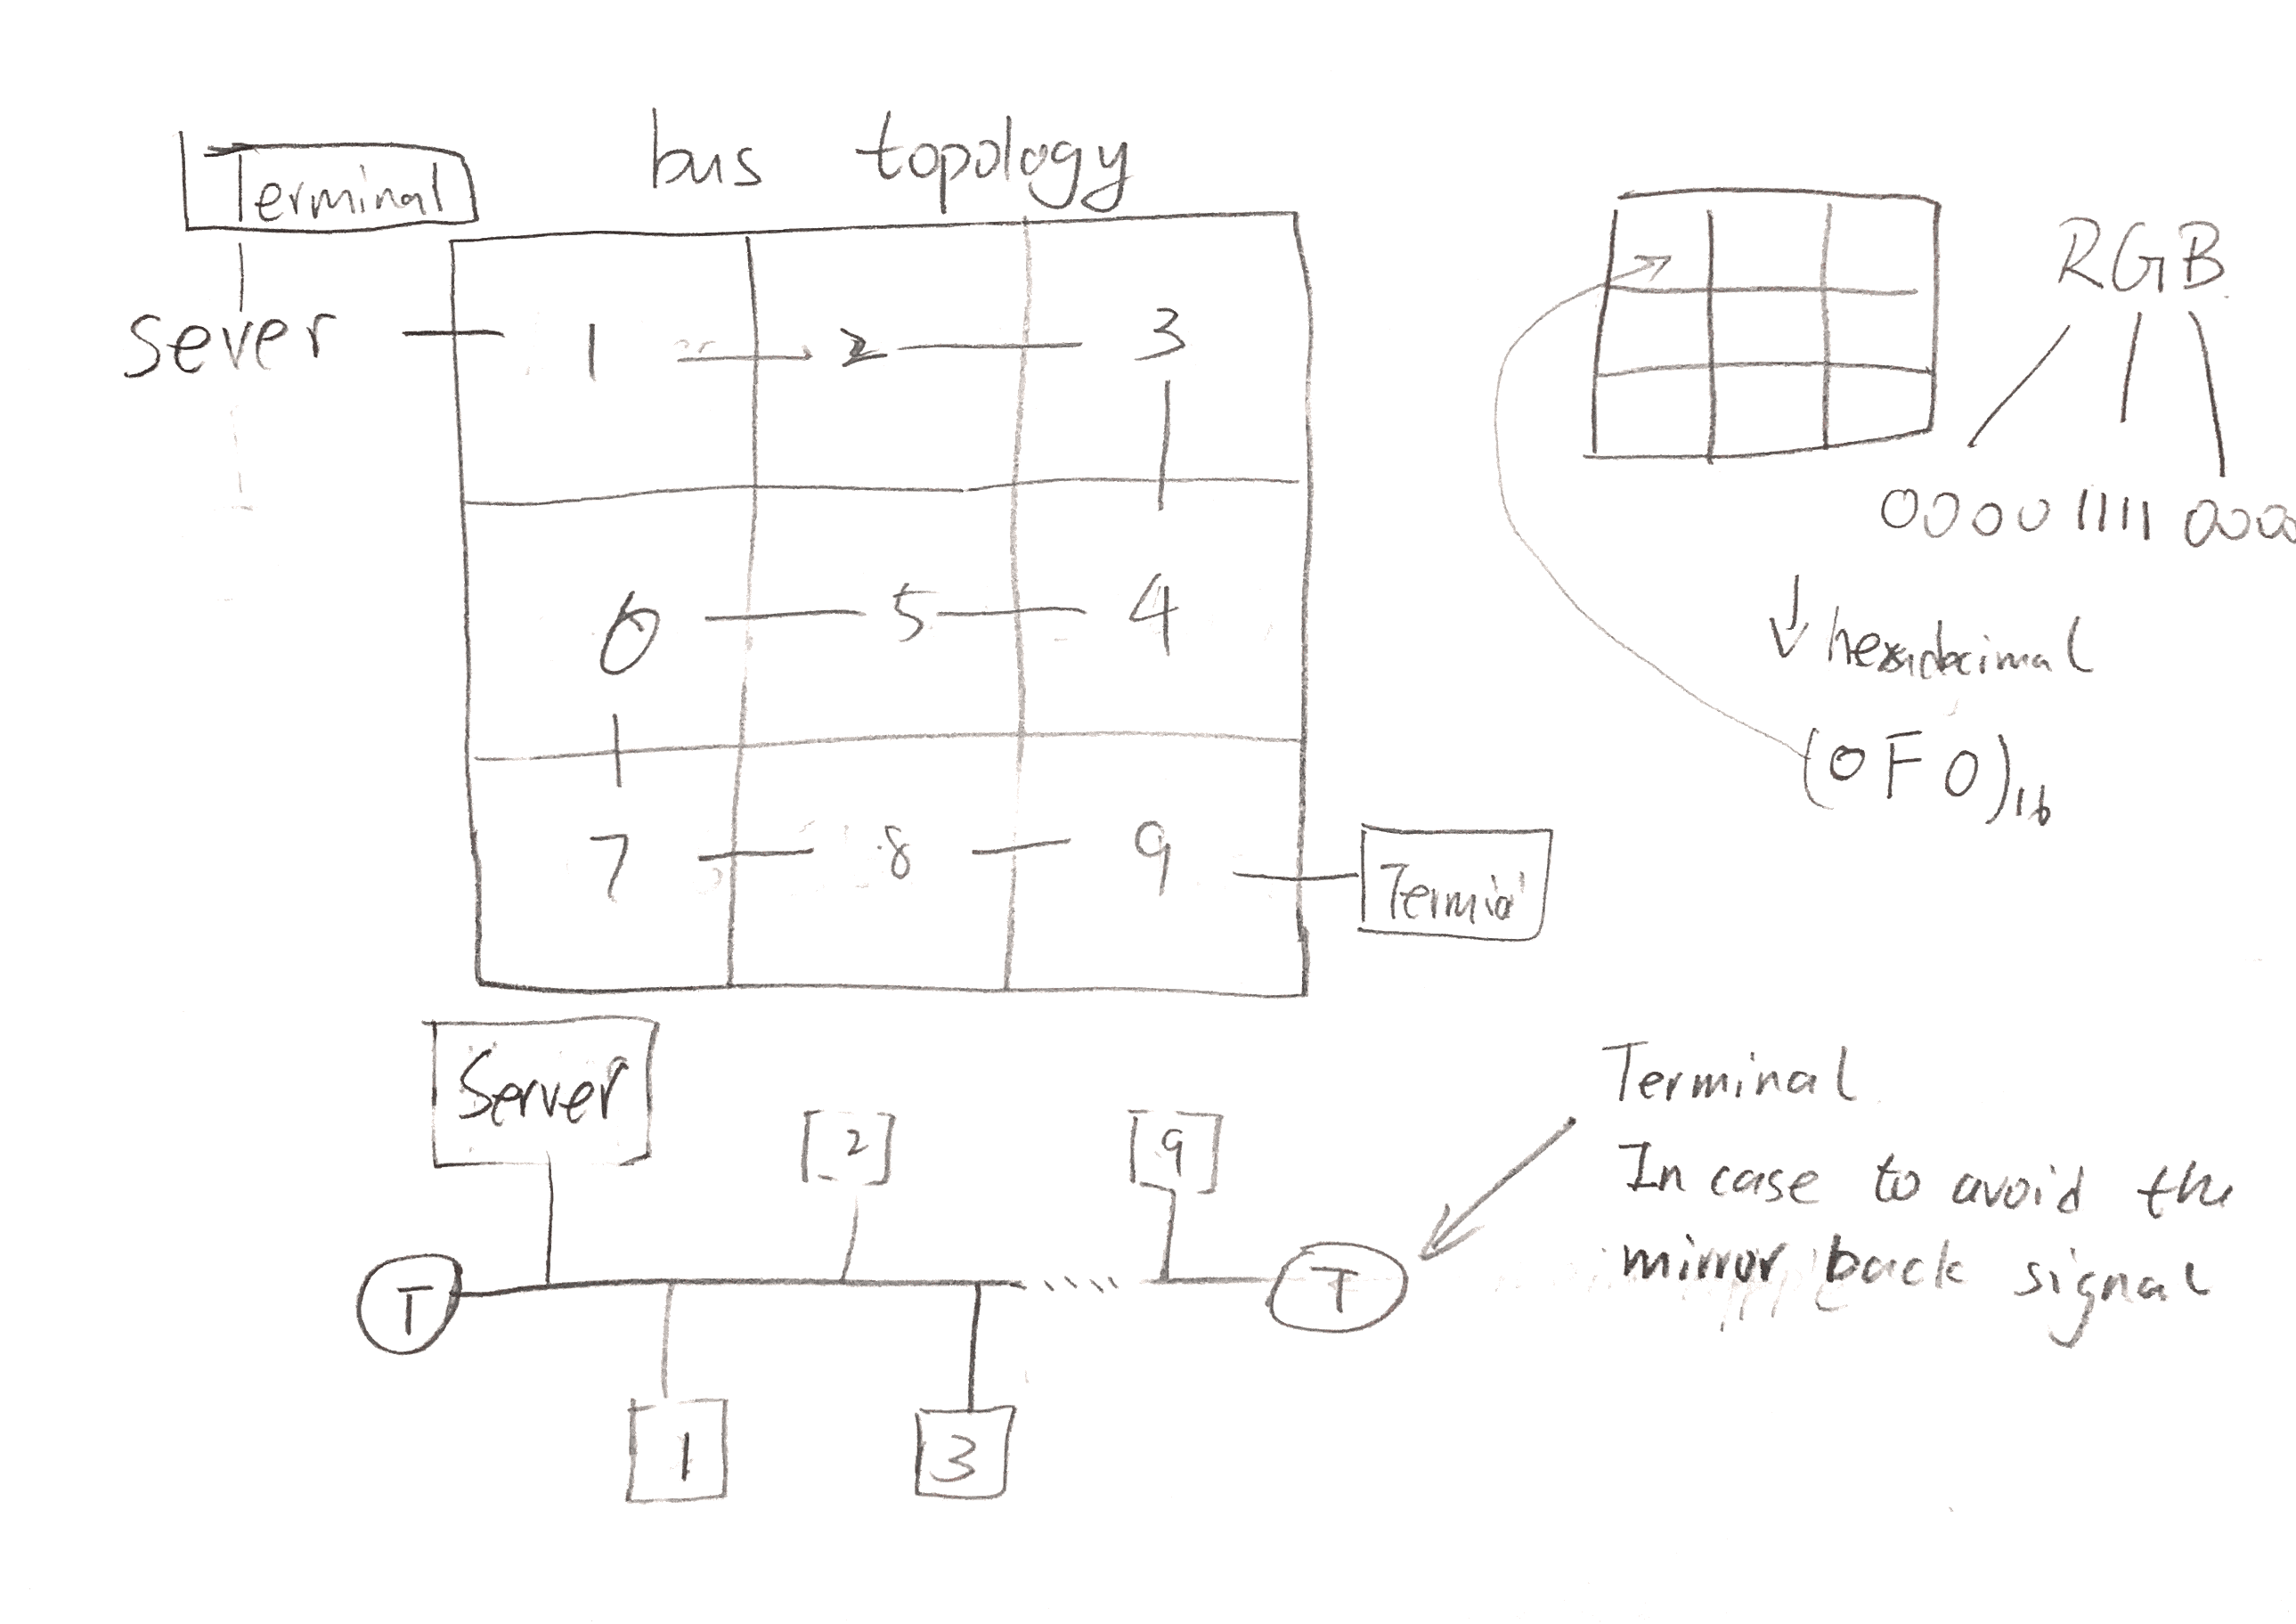 bus topology
Terminal
sever
1 2 3
6 5 4
7 8 9
RGB
0000 1111 0000
hexadecimal
(0F0)16
Server
[2]
[9]
T
T
1
3
Terminal
In case to avoid the
mirror back signal